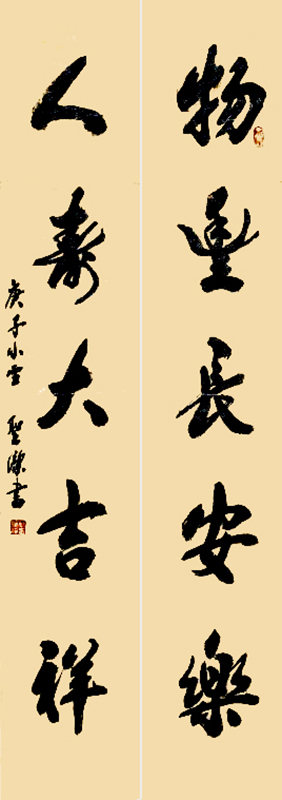 物豐長安樂
人壽大吉祥
庚子小雪 聖濼書